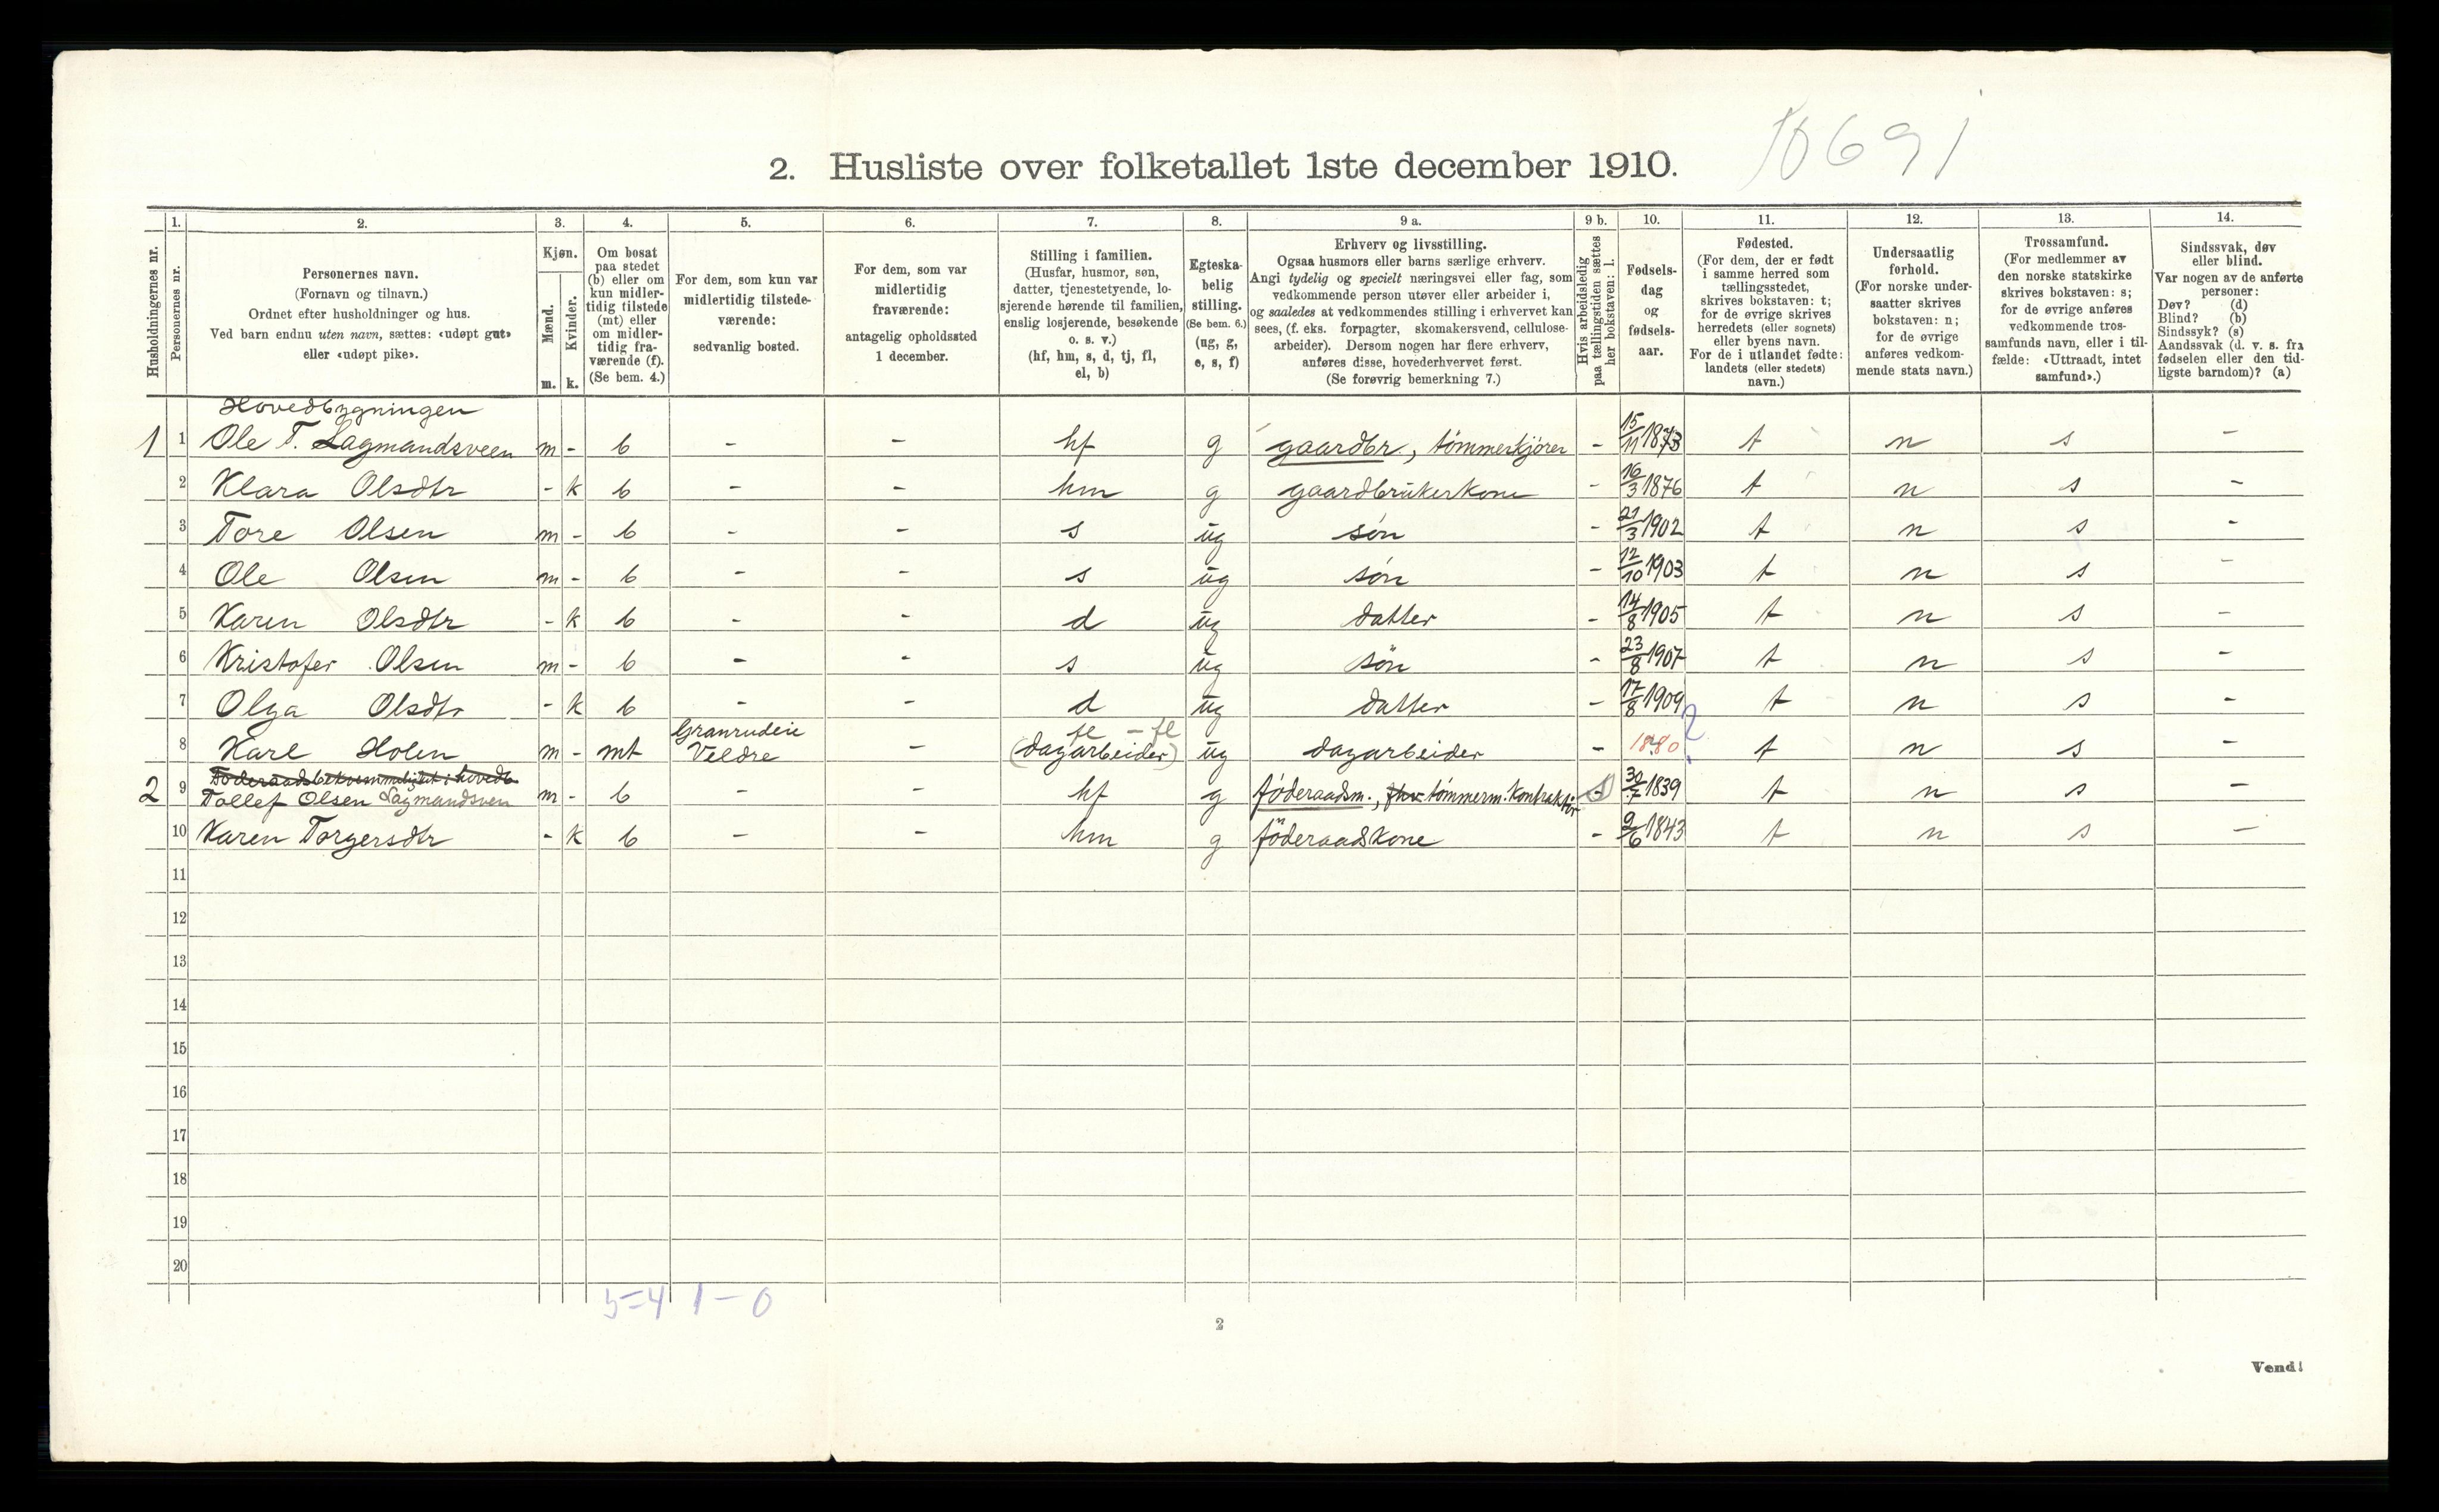 10691
2. Husliste over folketallet 1ste december 1910.
Husholdningernes nr.
1. Personernes nr.
2. Personernes navn. (Fornavn og tilnavn.) Ordnet efter husholdninger og hus. Ved barn endnu uten navn, sættes: «udøpt gut» eller «udøpt pike».
3. Kjøn. Mænd. m. Kvinder. k.
4. Om bosat paa stedet (b) eller om kun midlertidig tilstede (mt) eller om midlertidig fraværende (f). (Se bem. 4.)
5. For dem, som kun var midlertidig tilstedeværende: sedvanlig bosted.
6. For dem, som var midlertidig fraværende: antagelig opholdssted 1 december.
7. Stilling i familien. (Husfar, husmor, søn, datter, tjenestetyende, losjerende hørende til familien, enslig losjerende, besøkende o. s. v.) (hf, hm, s, d, tj, fl, el, b)
8. Egteskabelig stilling. (Se bem. 6.) (ug, g, e, s, f)
9 a. Erhverv og livsstilling. Ogsaa husmors eller barns særlige erhverv. Angi tydelig og specielt næringsvei eller fag, som vedkommende person utøver eller arbeider i, og saaledes at vedkommendes stilling i erhvervet kan sees, (f. eks. forpagter, skomakersvend, cellulosearbeider). Dersom nogen har flere erhverv, anføres disse, hovederhvervet først. (Se forøvrig bemerkning 7.)
9 b. Hvis arbeidsledig paa tællingstiden sættes her bokstaven: l.
10. Fødselsdag og fødselsaar.
11. Fødested. (For dem, der er født i samme herred som tællingsstedet, skrives bokstaven: t; for de øvrige skrives herredets (eller sognets) eller byens navn. For de i utlandet fødte: landets (eller stedets) navn.)
12. Undersaatlig forhold. (For norske undersaatter skrives bokstaven: n; for de øvrige anføres vedkommende stats navn.)
13. Trossamfund. (For medlemmer av den norske statskirke skrives bokstaven: s; for de øvrige anføres vedkommende trossamfunds navn, eller i tilfælde: «Uttraadt, intet samfund».)
14. Sindssvak, døv eller blind. Var nogen av de anførte personer: Døv? (d) Blind? (b) Sindssyk? (s) Aandssvak (d. v. s. fra fødselen eller den tidligste barndom)? (a)
Hovedbygningen
1 1 Ole T. Lagmandsveen m - b - - hf g gaardbr., tømmerkjører - 15/11 1873 t n s -
2 Klara Olsdtr - k b - - hm g gaardbrukerkone - 16/3 1876 t n s -
3 Tore Olsen m - b - - s ug søn - 21/3 1902 t n s -
4 Ole Olsen m - b - - s ug søn - 12/10 1903 t n s -
5 Karen Olsdtr - k b - - d ug datter - 14/8 1905 t n s -
6 Kristofer Olsen m - b - - s ug søn - 23/8 1907 t n s -
7 Olga Olsdtr - k b - - d ug datter - 17/8 1909 t n s -
Granrudeie fl - fl ?
8 Karl Holen m - mt Veldre - (dagarbeider) ug dagarbeider - 1880 t n s -
Føderaadsbekvemmelighet i hovedb.
2 9 Tollef Olsen Lagmandsven m - b - - hf g føderaadsm., fhv tømmerm. kontraktør - 30/7 1839 t n s -
10 Karen Torgersdtr - k b - - hm g føderaadskone - 9/6 1843 t n s -
11
12
13
14
15
16
17
18
19
20
5=4 1-0
2
Vend!